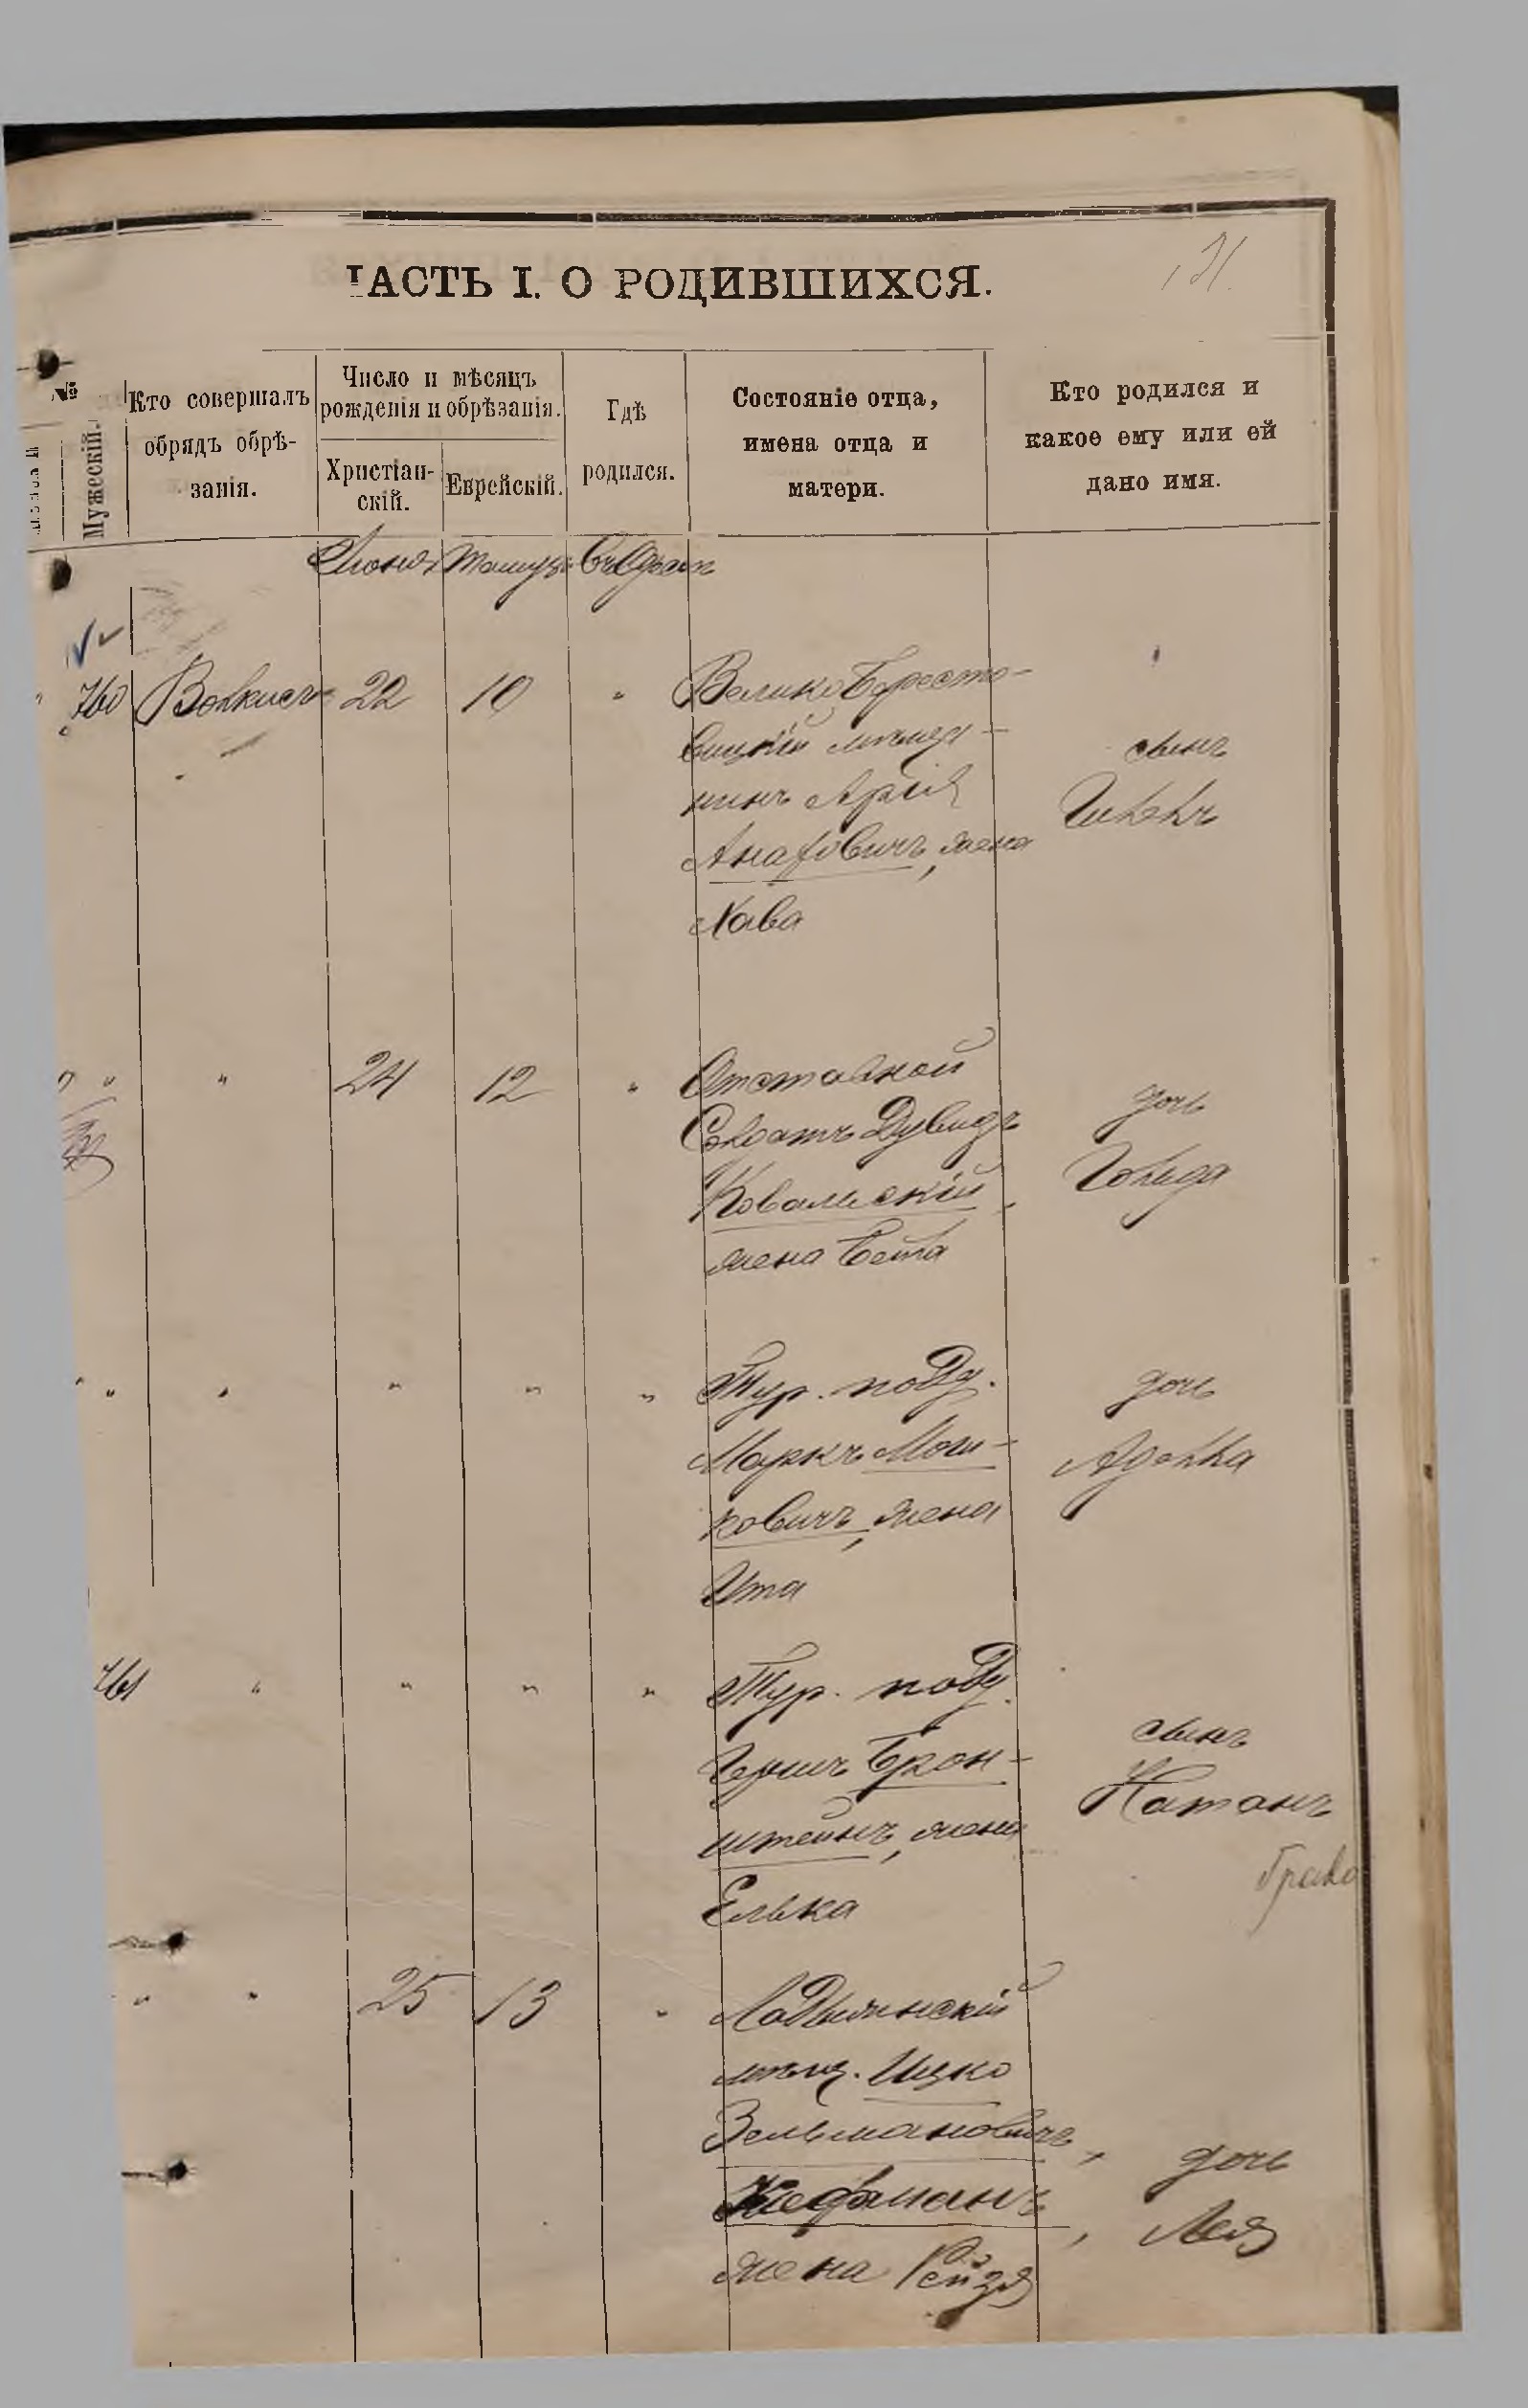 131
ЧАСТЬ I. О РОДИВШИХСЯ.
№
Мужескій.
Кто совершалъ
обрядъ обрѣ-
занія.
Число и мѣсяцъ
рожденія и обрѣзанія.
Христіан-
скій.
Еврейскій.
Гдѣ
родился.
Состояніе отца,
имена отца и
матери.
Кто родился и
какое ему или ей
дано имя.
Іюня Тамуз
760 22 10 " Велико Бересто-
вицкій мѣща-
нинъ Арія
жена
Хава
сынъ
" " 24 12 " Отставной
Солдатъ Дувидъ
Ковальскій,
жена Бейла
дочь
Голида
" " " " " Тур. подд.
Маркъ Мош-
ковичъ, жена
Ита
дочь
Аделла
761 " " " " Тур. подд.
Гершъ Брон-
штейнъ, жена
Елька
сынъ
Натанъ
" " 25 13 " Ладыжинскій
мѣщ. Ицко
Зельмановичъ,
жена Рейзя
дочь
Лея